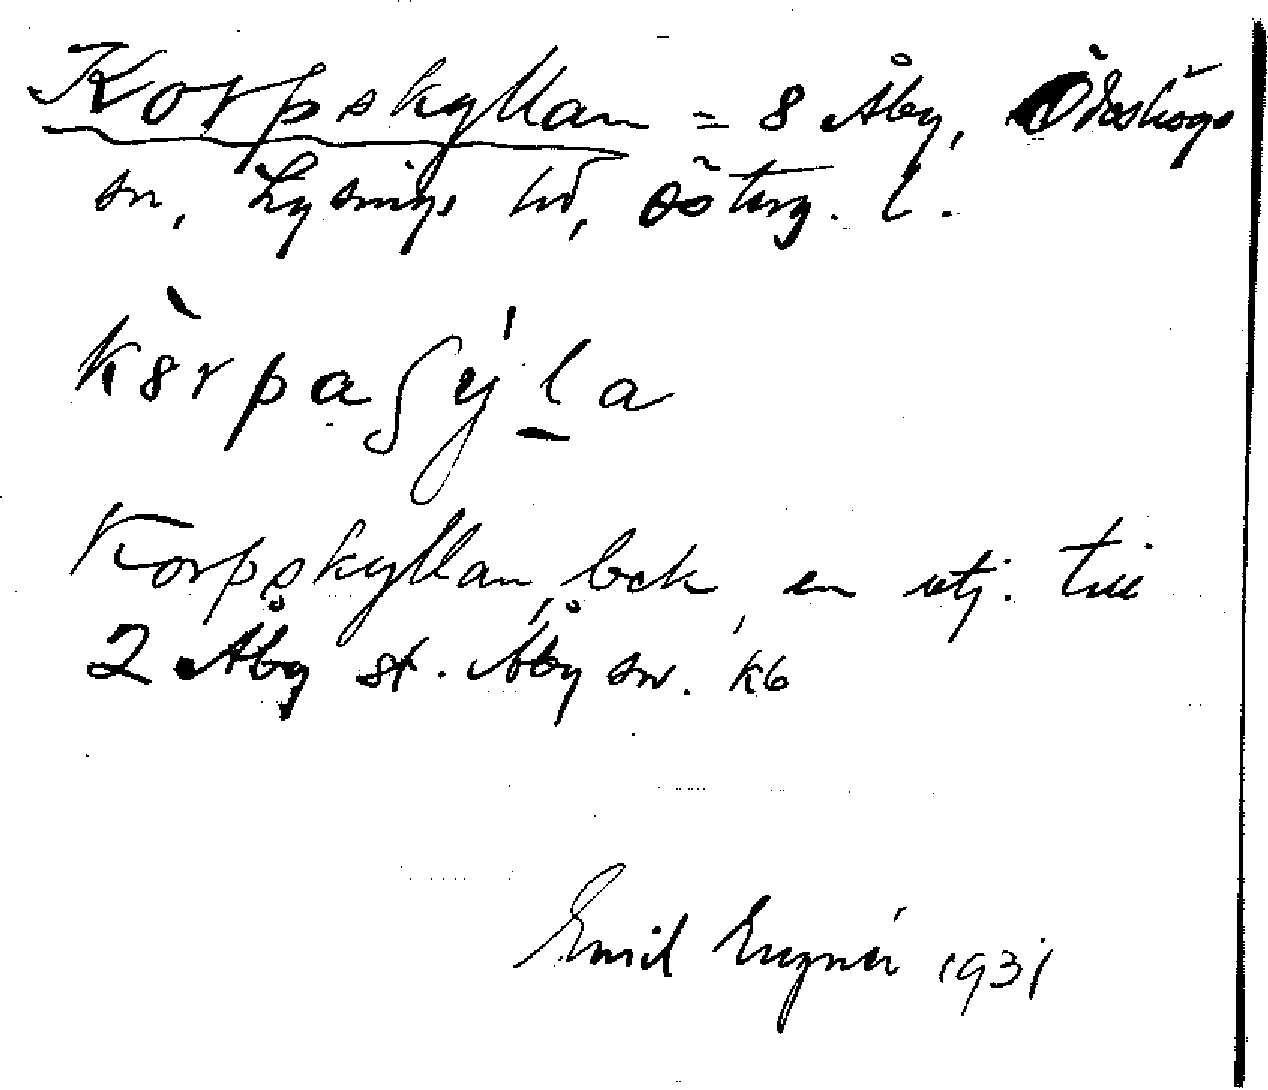 Korpskyllan = 8 Åby, Ödeshögs
sn, Lysings hd, Österg. l.
Korpskyllan, bek, en utj. till
2 Åby st. Åby sn. kb
Emil Engnér 1931